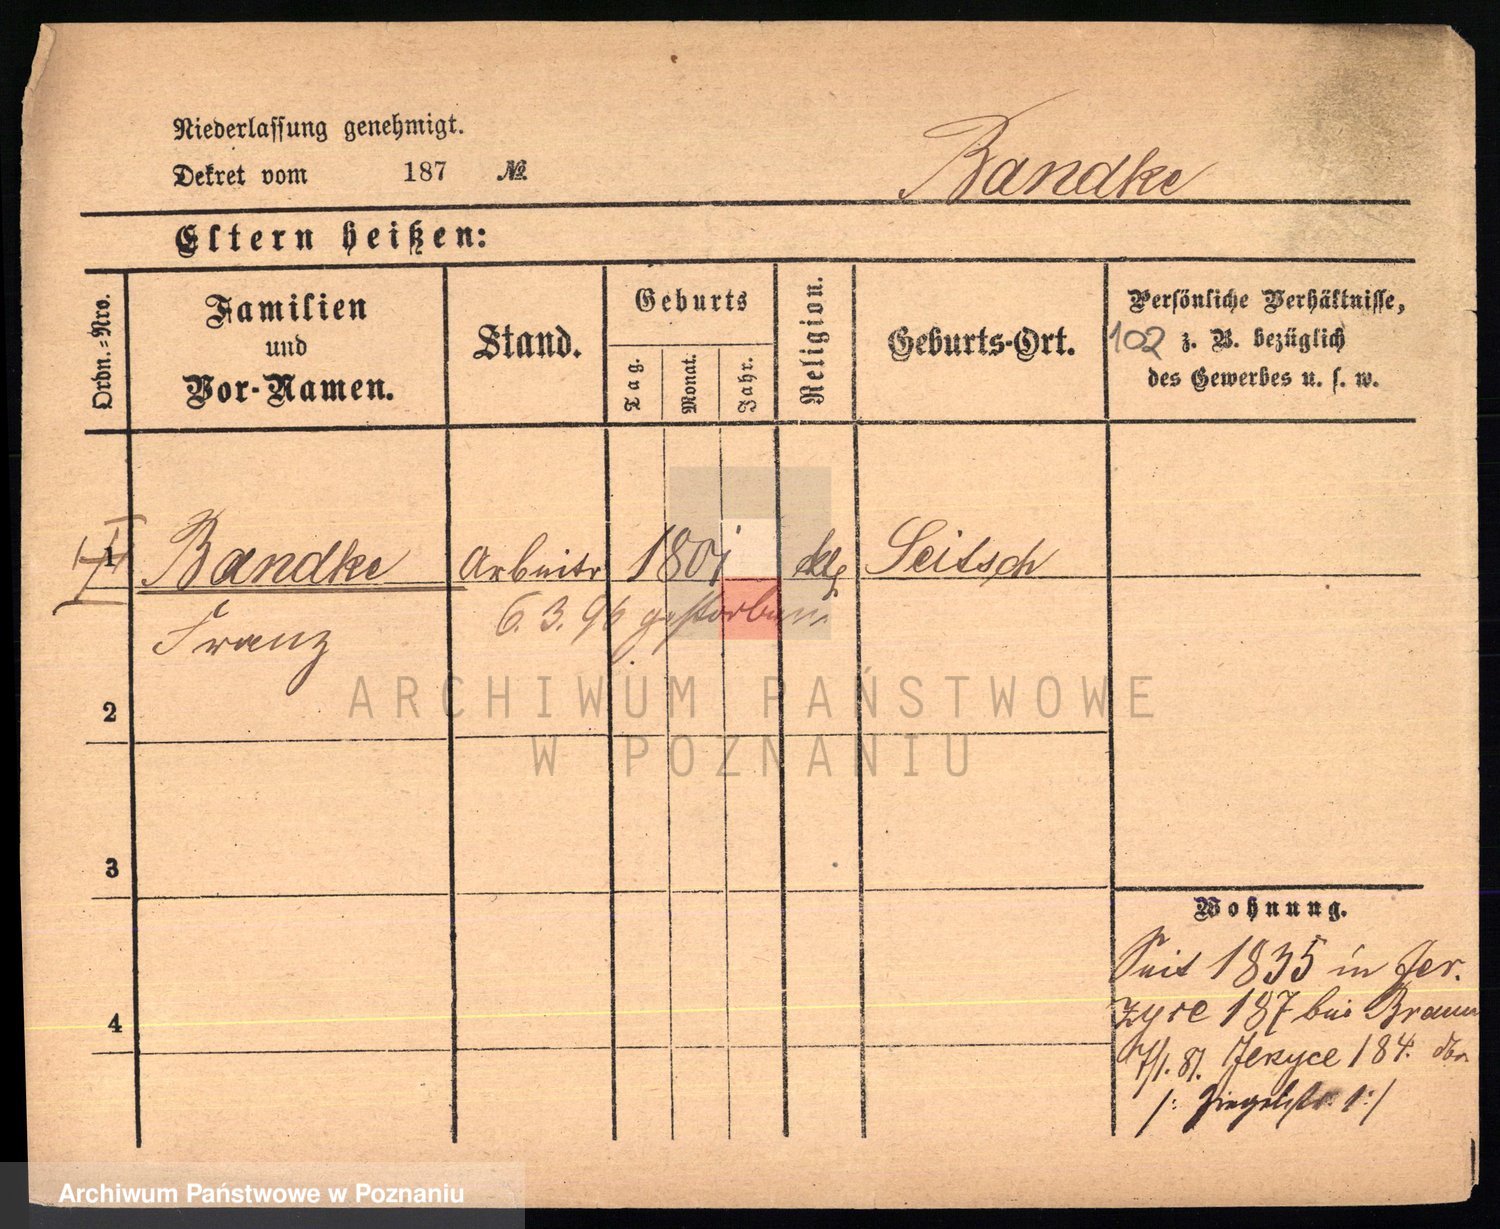 Niederlassung genehmigt.
Dekret vom 187 №
Bandke
Eltern heißen:
Ordn.-Nro.
Familien
und
Vor-Namen.
Stand.
Geburts
Tag.
Monat.
Jahr.
Religion.
Geburts-Ort.
Persönliche Verhältnisse,
102 z. B. bezüglich
des Gewerbes u. s. w.
1 Bandke Arbeitr 1801 Seitsch
Franz 6. 3. 96 gestorben
2
ARCHIWUM PAŃSTWOWE
W POZNANIU
3
Wohnung.
Seit 1835 in Jer.
zyce 187 bei Braun
4
7/1. 81. Jerzyce 184.
/: Ziegelstr. 1 :/
Archiwum Państwowe w Poznaniu